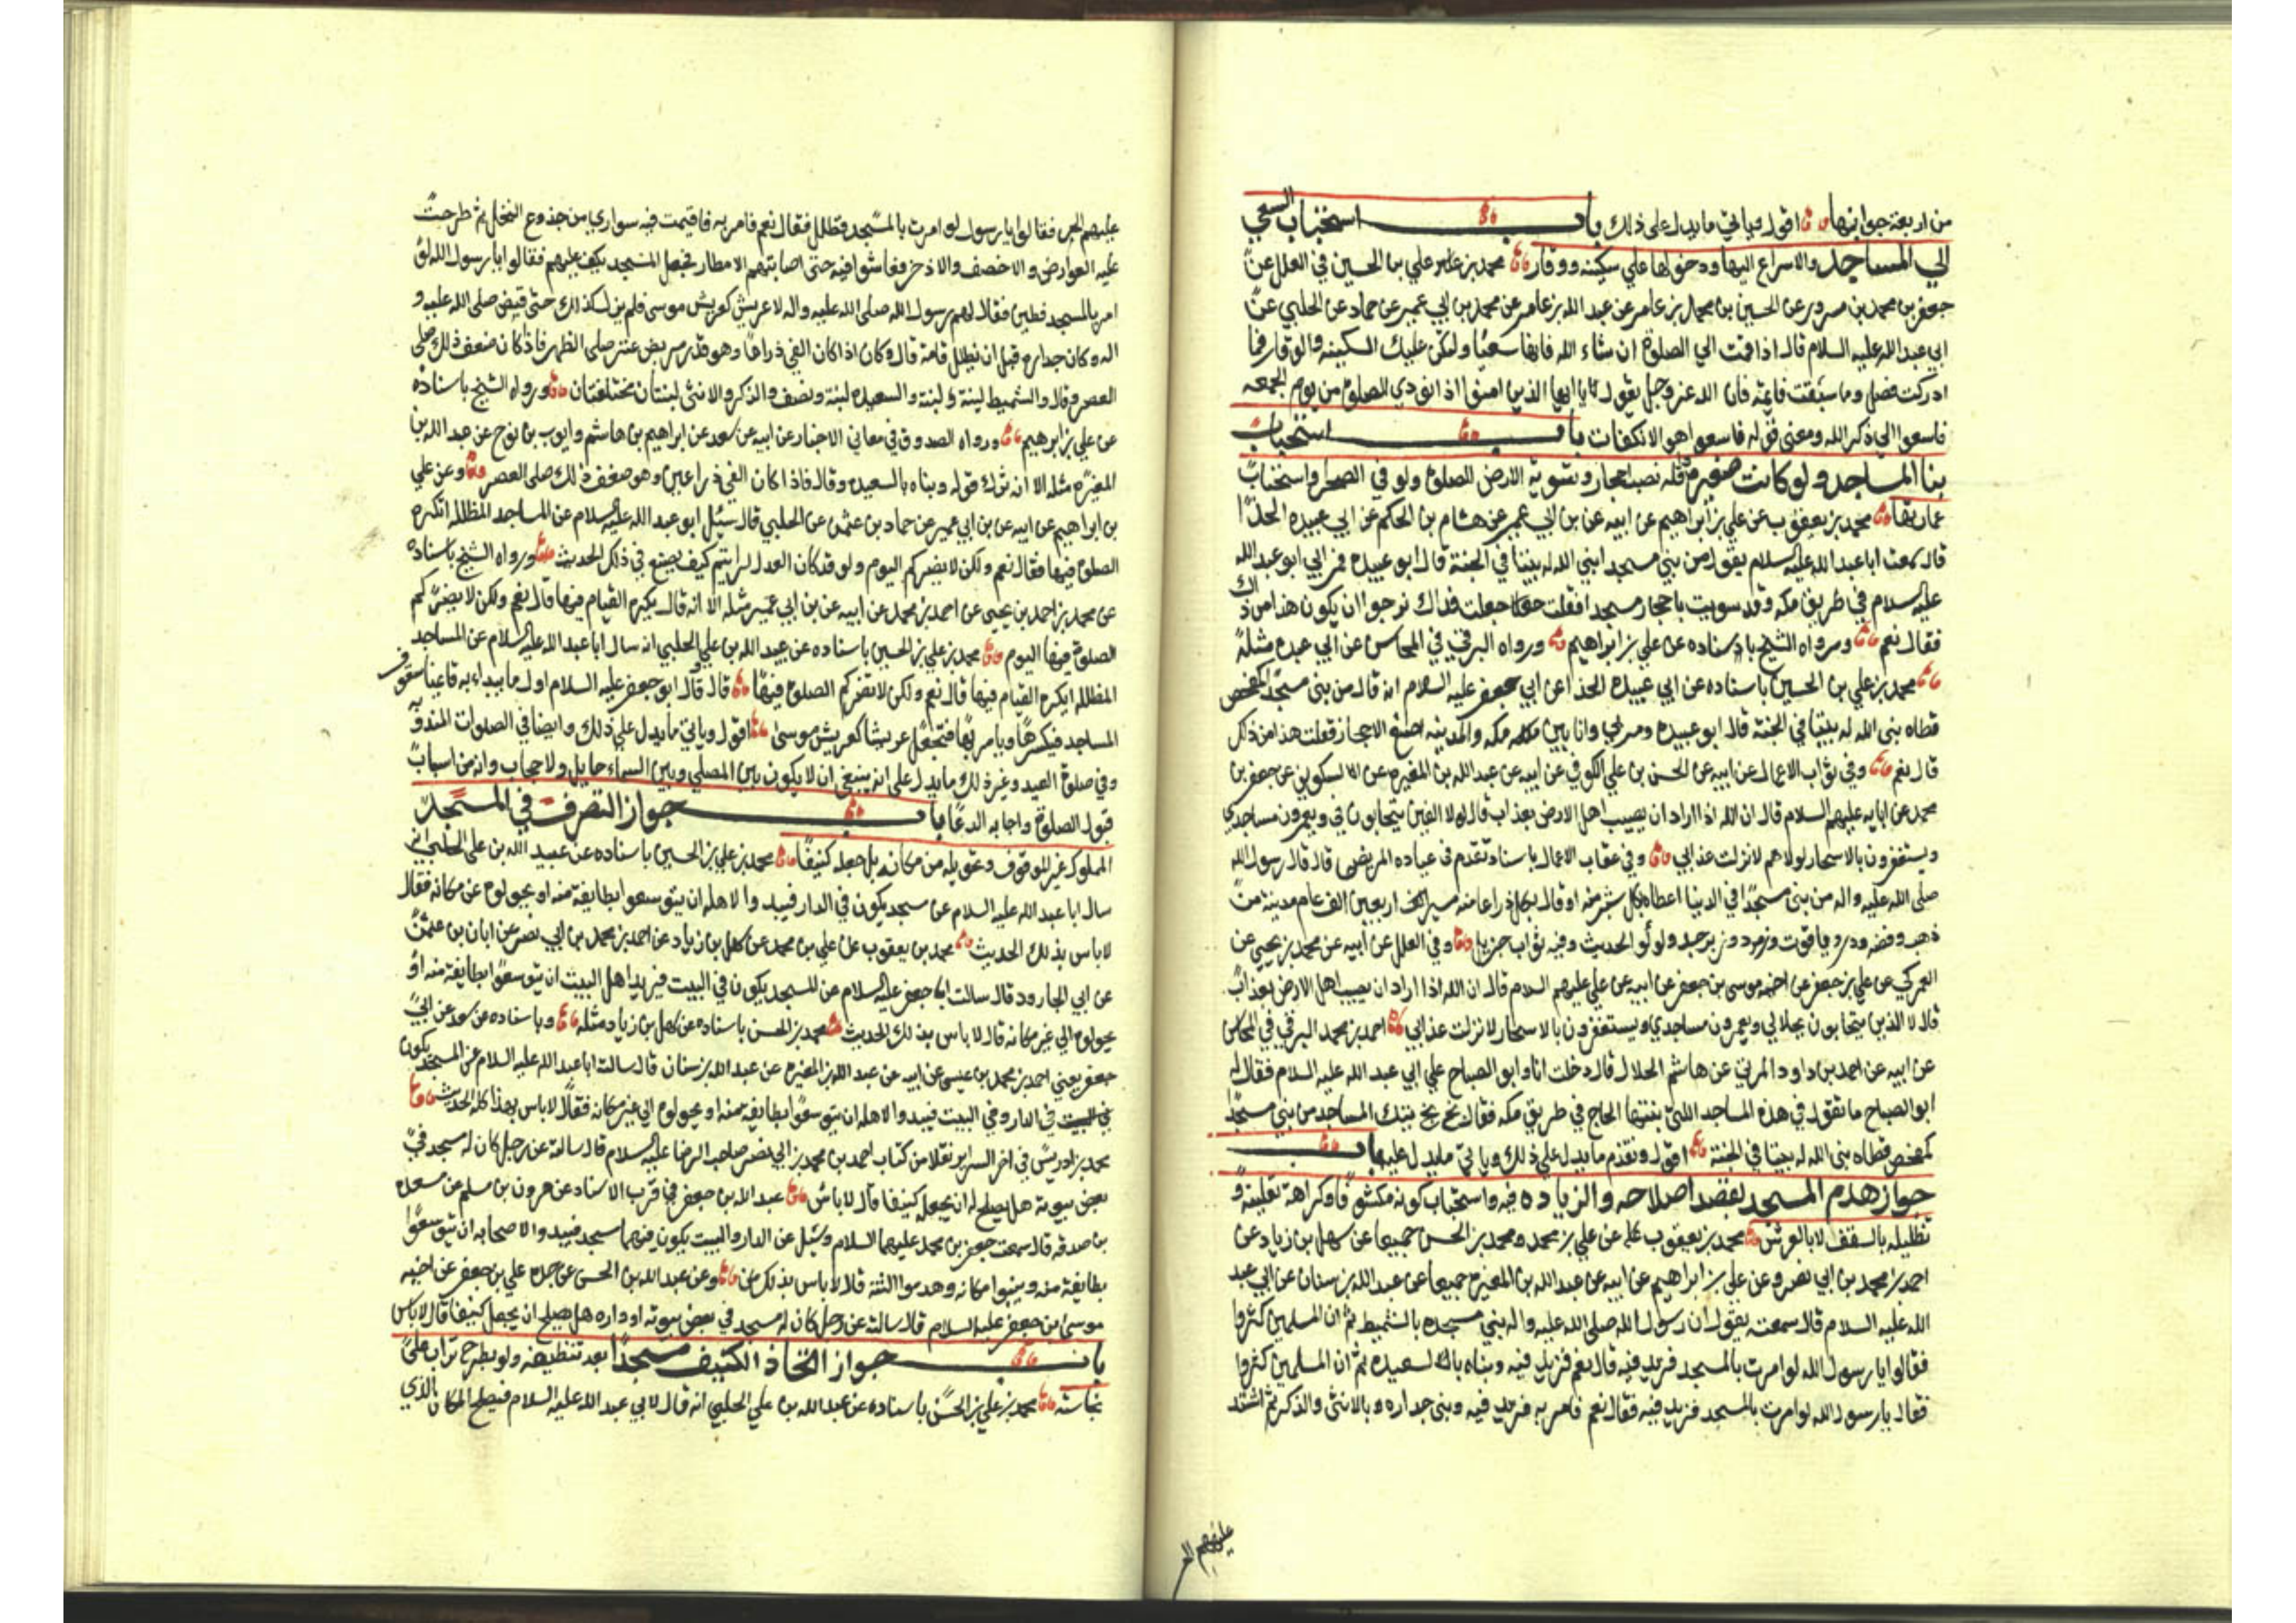 من اربعة جوانبها اقول وياتي ما يدل على ذلك باب استحباب السعي
الي المساجد والاسراع اليها ودخولها علي سكينه ووقار محمد بن علي بن الحسين في العلل عن
جعفر بن محمد بن مسرور عن الحسين بن محمد بن عامر عن عبد الله بن عامر عن محمد بن ابي عمير عن حماد عن الحلبي عن
ابي عبد الله عليه السلام قال اذا قمت الي الصلوة ان شاء الله فاتها سعيا ولتكن عليك السكينه والوقار فما
ادركت فصل وما سبقت فاتمه فان الله عز وجل يقول يا ايها الذين امنوا اذا نودي للصلوة من يوم الجمعه
فاسعوا الي ذكر الله ومعنى قوله فاسعوا هو الانكفات باب استحباب
بنا المساجد ولو كانت صغيره واقله نصب احجار وتسوية الارض للصلوة ولو في الصحرا واستحباب
عمارتها محمد بن يعقوب عن علي بن ابراهيم عن ابيه عن بن ابي عمير عن هشام بن الحكم عن ابي عبيده الحذا
قال سمعت ابا عبد الله عليه السلام يقول من بني مسجدا بني الله له بيتا في الجنة قال ابو عبيده فمر بي ابو عبد الله
عليه السلام في طريق مكه وقد سويت باحجار مسجدا فقلت جعلت فداك نرجوا ان يكون هذا من ذاك
فقال نعم ورواه الشيخ باسناده عن علي بن ابراهيم ورواه البرقي في المحاسن عن ابي عبيده مثله
محمد بن علي بن الحسين باسناده عن ابي عبيده الحذا عن ابي جعفر عليه السلام انه قال من بنى مسجدا كمفحص
قطاه بنى الله له بيتا في الجنة قال ابو عبيده ومر بي وانا بين مكه والمدينه اضع الاحجار فقلت هذا من ذلك
قال نعم وفي ثواب الاعمال عن ابيه عن الحسن بن علي الكوفي عن ابيه عن عبد الله بن المغيره عن السكوني عن جعفر بن
محمد عن ابايه عليهم السلام قال ان الله اذا اراد ان يصيب اهل الارض بعذاب قال لولا الذين يتحابون في ويعمرون مساجدي
ويستغفرون بالاسحار لولاهم لانزلت عذابي وفي عقاب الاعمال باسناد تقدم في عياده المريض قال قال رسول الله
صلى الله عليه واله من بنى مسجدا في الدنيا اعطاه بكل شبر منه او قال بكل ذراع منه مسيرة اربعين الف عام مدينة من
ذهب وفضه ودر وياقوت وزمرد وزبرجد ولولو الحديث وفيه ثواب جزيل وفي العلل عن ابيه عن محمد بن يحيى عن
العمركي عن علي بن جعفر عن اخيه موسى بن جعفر عن ابيه عن علي عليهم السلام قال ان الله اذا اراد ان يصيب اهل الارض بعذاب
قال لا الذين يتحابون بجلالي ويعمرون مساجدي ويستغفرون بالاسحار لانزلت عذابي احمد بن محمد البرقي في المحاسن
عن ابيه عن احمد بن داود المزني عن هاشم الحلال قال دخلت انا وابو الصباح علي ابي عبد الله عليه السلام فقال له
ابو الصباح ما تقول في هذه المساجد اللتي بنتها الحاج في طريق مكه فقال بخ بخ تيك المساجد من بني مسجدا
كمفحص قطاه بنى الله له بيتا في الجنة اقول وتقدم ما يدل علي ذلك وياتي ما يدل عليه باب
جواز هدم المسجد بقصد اصلاحه والزياده فيه واستحباب كونه مكشوفا وكراهة تعليته و
تظليله بالسقف لا بالعرش محمد بن يعقوب عن علي بن محمد ومحمد بن الحسن جميعا عن سهل بن زياد عن
احمد بن محمد بن ابي نصر وعن علي بن ابراهيم عن ابيه عن عبد الله بن المغيره جميعا عن عبد الله بن سنان عن ابي عبد
الله عليه السلام قال سمعته يقول ان رسول الله صلى الله عليه واله بني مسجده بالشميط ثم ان المسلمين كثروا
فقالوا يا رسول الله لو امرت بالمسجد فزيد فيه قال نعم فزيد فيه وبناه بالسعيده ثم ان المسلمين كثروا
فقال يا رسول الله لو امرت بالمسجد فزيد فيه فقال نعم فامر به فزيد فيه وبنى جداره بالانثى والذكر ثم اشتد
عليهم الحر
عليهم الحر فقالوا يا رسول لو امرت بالمسجد فظلل فقال نعم فامر به فاقيمت فيه سواري من جذوع النخل ثم طرحت
عليه العوارض والاخصف والاذخر فعاشوا فيه حتى اصابتهم الامطار فجعل المسجد يكف عليهم فقالوا يا رسول الله لو
امرت بالمسجد فطين فقال لهم رسول الله صلى الله عليه واله لا عريش كعريش موسى فلم يزل كذلك حتى قبض صلى الله عليه و
اله وكان جداره قبل ان يظلل قامة قال وكان اذا كان الفي ذراعا وهو قدر مربض عنز صلى الظهر فاذا كان ضعف ذلك صلى
العصر وقال والشميط لبنة ولبنة والسعيده لبنة ونصف والذكر والانثى لبنتان مختلفتان ورواه الشيخ باسناده
عن علي بن ابراهيم ورواه الصدوق في معاني الاخبار عن ابيه عن سعد عن ابراهيم بن هاشم وايوب بن نوح عن عبد الله بن
المغيره مثله الا انه ترك قوله وبناه بالسعيده وقال فاذا كان الفي ذراعين وهو ضعف ذلك صلى العصر وعن علي
بن ابراهيم عن ابيه عن بن ابي عمير عن حماد بن عثمن عن الحلبي قال سئل ابو عبد الله عليه السلام عن المساجد المظلله اتكره
الصلوة فيها فقال نعم ولكن لا يضركم اليوم ولو قد كان العدل لرايتم كيف يصنع في ذلك الحديث ورواه الشيخ باسناده
عن محمد بن احمد بن يحيى عن احمد بن محمد عن ابيه عن بن ابي عمير مثله الا انه قال يكره القيام فيها قال نعم ولكن لا يضركم
الصلوة فيها اليوم محمد بن علي بن الحسين باسناده عن عبيد الله بن علي الحلبي انه سال ابا عبد الله عليه السلام عن المساجد
المظلله ايكره القيام فيها قال نعم ولكن لا تضركم الصلوة فيها قال وقال ابو جعفر عليه السلام اول ما يبداء به قائمنا سقوف
المساجد فيكسرها ويامر بها فتجعل عريشا كعريش موسى اقول وياتي ما يدل علي ذلك وايضا في الصلوات المندوبه
وفي صلوة العيد وغير ذلك ما يدل على انه ينبغي ان لا يكون بين المصلي وبين السماء حايل ولا حجاب وانه من اسباب
قبول الصلوة واجابه الدعا باب جواز التصرف في المسجد
المملوك غير الموقوف وتحويله من مكانه بل جعله كنيفا محمد بن علي بن الحسين باسناده عن عبيد الله بن علي الحلبي انه
سال ابا عبد الله عليه السلام عن مسجد يكون في الدار فيبدوا لاهله ان يتوسعوا بطايفة منه او يحولوه عن مكانه فقال
لا باس بذلك الحديث محمد بن يعقوب عن علي بن محمد عن سهل بن زياد عن احمد بن محمد بن ابي نصر عن ابان بن عثمن
عن ابي الجارود قال سالت ابا جعفر عليه السلام عن المسجد يكون في البيت فيريد اهل البيت ان يتوسعوا بطايفة منه او
يحولوه الي غير مكانه قال لا باس بذلك الحديث محمد بن الحسن باسناده عن سهل بن زياد مثله وباسناده عن سعد عن ابي
جعفر يعني احمد بن محمد بن عيسى عن ابيه عن عبد الله بن المغيره عن عبد الله بن سنان قال سالت ابا عبد الله عليه السلام عن المسجد يكون
في الدار وفي البيت فيبدوا لاهله ان يتوسعوا بطايفة منه او يحولوه الي غير مكانه فقال لا باس بهذا كله الحديث
محمد بن ادريس في اخر السراير نقلا من كتاب احمد بن محمد بن ابي نصر صاحب الرضا عليه السلام قال سالته عن رجل كان له مسجد في
بعض بيوته هل يصلح له ان يجعله كنيفا قال لا باس عبد الله بن جعفر في قرب الاسناد عن هرون بن مسلم عن مسعده
بن صدقه قال سمعت جعفر بن محمد عليهما السلام وسئل عن الدار والبيت يكون فيهما مسجد فيبدوا لاصحابه ان يتوسعوا
بطايفة منه ويبنوا مكانه ويهدموا البنية قال لا باس بذلك وعن عبد الله بن الحسن عن جده علي بن جعفر عن اخيه
موسى بن جعفر عليه السلام قال سالته عن رجل كان له مسجد في بعض بيوته او داره هل يصلح ان يجعل كنيفا قال لا باس
باب جواز اتخاذ الكنيف مسجدا بعد تنظيفه ولو بطرح تراب على
نجاسته محمد بن علي بن الحسين باسناده عن عبيد الله بن علي الحلبي انه قال لابي عبد الله عليه السلام فيصلح المكان الذي